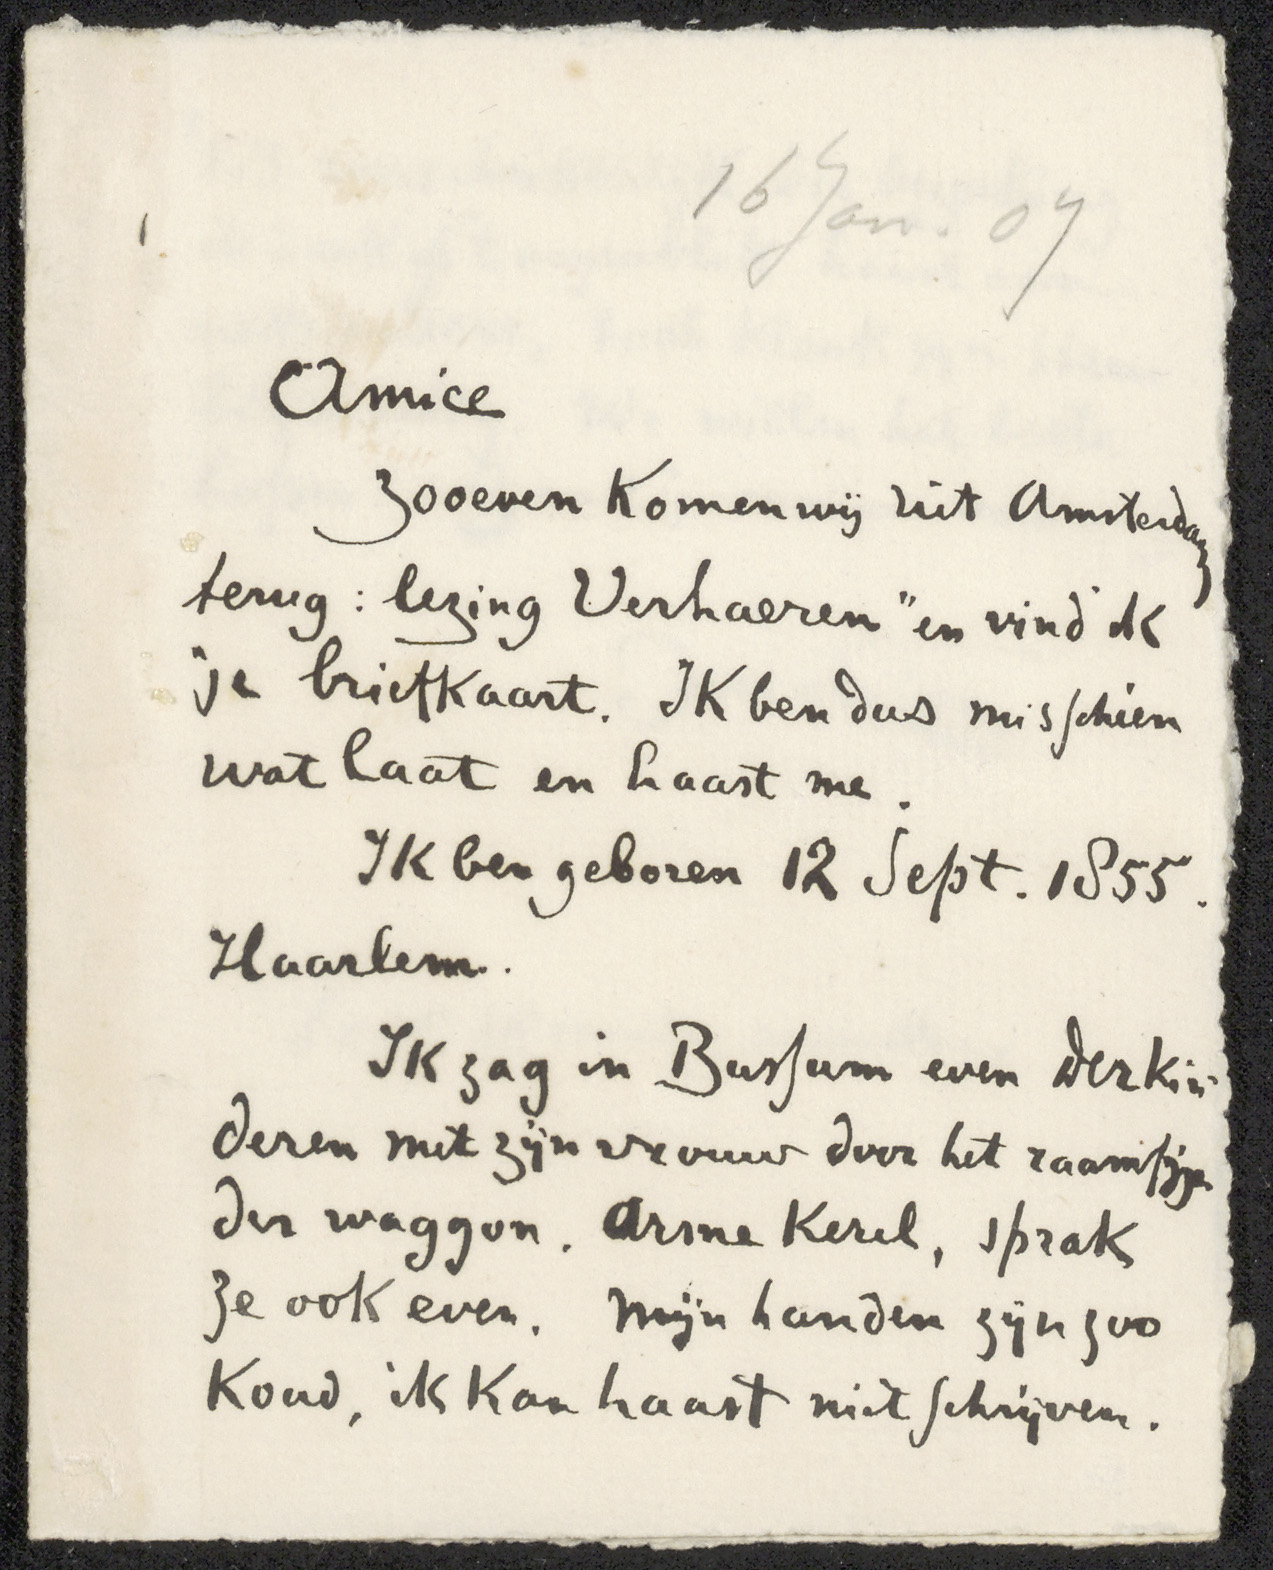 16 Jan. 07
Amice
Zooeven komen wij uit Amsterdam
terug: lezing Verhaeren" en vind ik
je briefkaart. Ik ben dus misschien
wat laat en haast me.
Ik ben geboren 12 Sept. 1855.
Haarlem.
Ik zag in Bussum even Derkin
deren met zijn vrouw door het raampje
der waggon. Arme kerel, sprak
ze ook even. Mijn handen zijn zoo
koud, ik kan haast niet schrijven.